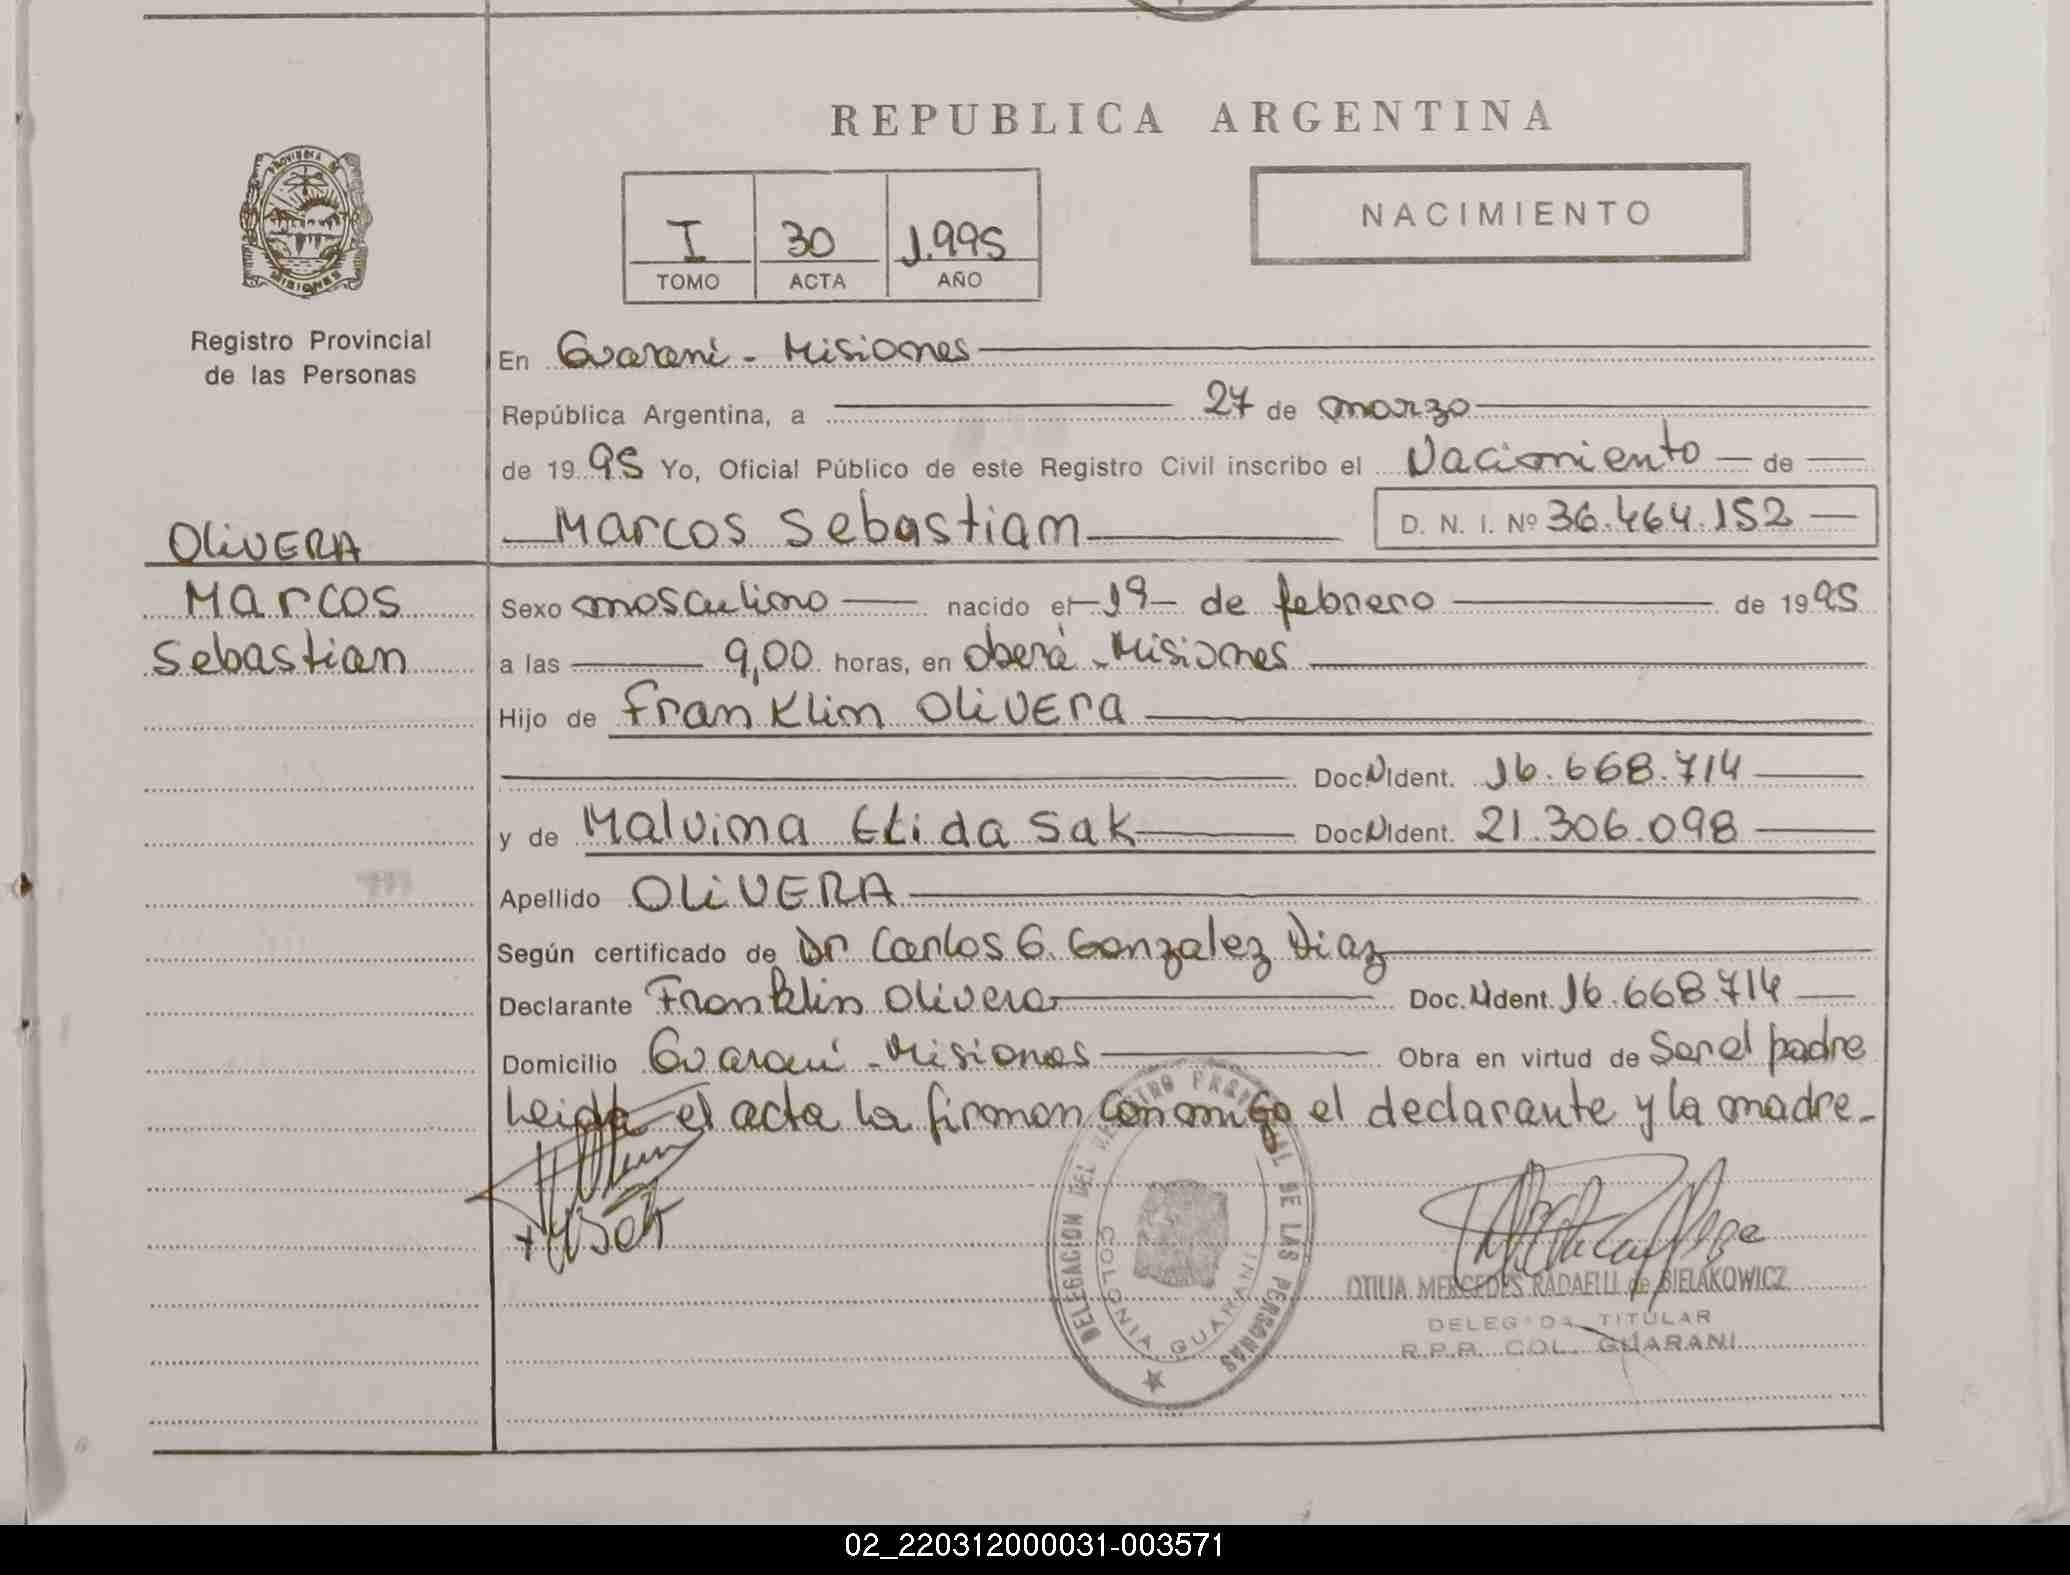 REPUBLICA ARGENTINA
PROVINCIA DE MISIONES
NACIMIENTO
I 30 1.995
TOMO ACTA AÑO
Registro Provincial
de las Personas
En Guaraní - Misiones
República Argentina, a 27 de marzo
de 1995 Yo, Oficial Público de este Registro Civil inscribo el Nacimiento de
Marcos Sebastian D. N. I. Nº 36.464.152
OLiVERA
Marcos
Sebastian
Sexo masculino nacido el 19 de febrero de 1995
a las 9,00 horas, en Oberá - Misiones
Hijo de Franklin OliVEra
Doc N Ident. 16.668.714
y de Malvina Elida Sak Doc N Ident. 21.306.098
Apellido OLiVERA
Según certificado de Dr Carlos G. Gonzalez Diaz
Declarante Franklin Olivera Doc. N Ident. 16.668.714
Domicilio Guaraní - Misiones Obra en virtud de Ser el padre
Leida el acta la firman conmigo el declarante y la madre.
DELEGACION DEL REGISTRO PROVINCIAL DE LAS PERSONAS
COLONIA GUARANI
OTILIA MERCEDES RADAELLI de BIELAKOWICZ
DELEGADA TITULAR
R.P.P. COL. GUARANI
02_220312000031-003571